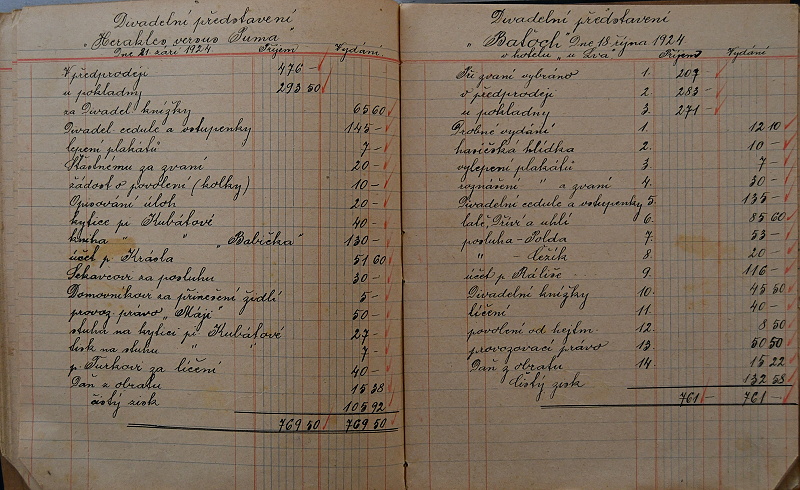 Divadelní představení
"Herakles versus Puma"
Dne 21 září 1924. Příjem Vydání
V předprodeji 476 -
u pokladny 293 50
za Divadel knížky 65 60
Divadel cedule a vstupenky 145 -
lepení plakátů 7 -
Šťastnému za zvaní 20 -
žádost o povolení (kolky) 10 -
Opisování úloh 20 -
kytice pí Kubátové 40 -
kniha " " "Babička" 130 -
účet p. Krásla 51 60
za posluhu 30 -
Domovníkovi za přinešení židlí 5 -
provoz. právo "Máji" 50 -
stuha na kytici pí Kubátové 27 -
tisk na stuhu " 7 -
p. Turkovi za líčení 40 -
Daň z obratu 15 38
čistý zisk 105 92
769 50 769 50
Divadelní představení
"Batoch" Dne 18 října 1924
v hotelu "u Lva" Příjem Vydání
Při zvaní vybráno 1. 207 -
v předprodeji 2. 283 -
u pokladny 3. 271 -
Drobné vydání 1. 12 10
hasičská hlídka 2. 10 -
vylepení plakátů 3. 7 -
roznášení " a zvaní 4. 30 -
Divadelní cedule a vstupenky 5. 135 -
latě, Dříví a uhlí 6. 85 60
posluha - Polda 7. 53 -
" - Ležík 8. 20 -
účet p. 9. 116 -
Divadelní knížky 10. 45 50
líčení 11. 40 -
povolení od hejtm. 12. 8 50
provozovací právo 13. 50 50
Daň z obratu 14. 15 22
čistý zisk 132 58
761 - 761 -